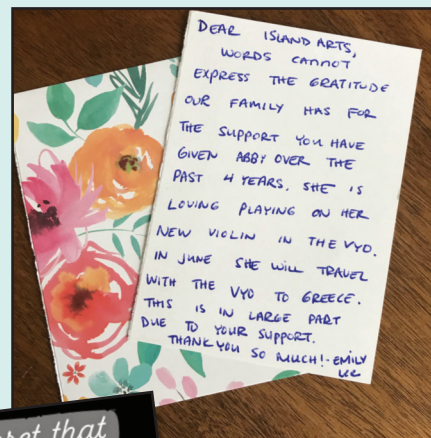 DEAR ISLAND ARTS,
WORDS CANNOT
EXPRESS THE GRATITUDE
OUR FAMILY HAS FOR
THE SUPPORT YOU HAVE
GIVEN ABBY OVER THE
PAST 4 YEARS. SHE IS
LOVING PLAYING ON HER
NEW VIOLIN IN THE VYO.
IN JUNE SHE WILL TRAVEL
WITH THE VYO TO GREECE.
THIS IS IN LARGE PART
DUE TO YOUR SUPPORT.
THANK YOU SO MUCH! - EMILY
that